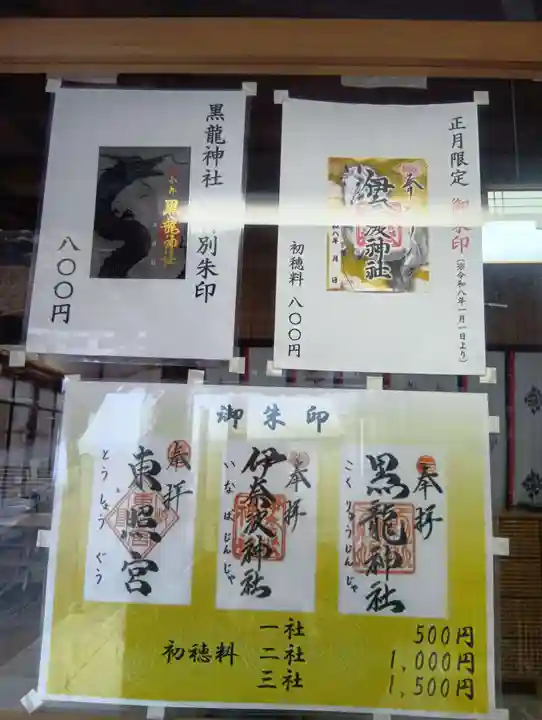 黒龍神社 別朱印
黒龍神社
八〇〇円
正月限定 御朱印
(※令和八年一月一日より)
伊奈波神社
月 日
初穂料 八〇〇円
御朱印
奉拝
黒龍神社
こくりゅうじんじゃ
奉拝
伊奈波神社
いなばじんじゃ
奉拝
東照宮
とうしょうぐう
初穂料
一社 500円
二社 1,000円
三社 1,500円